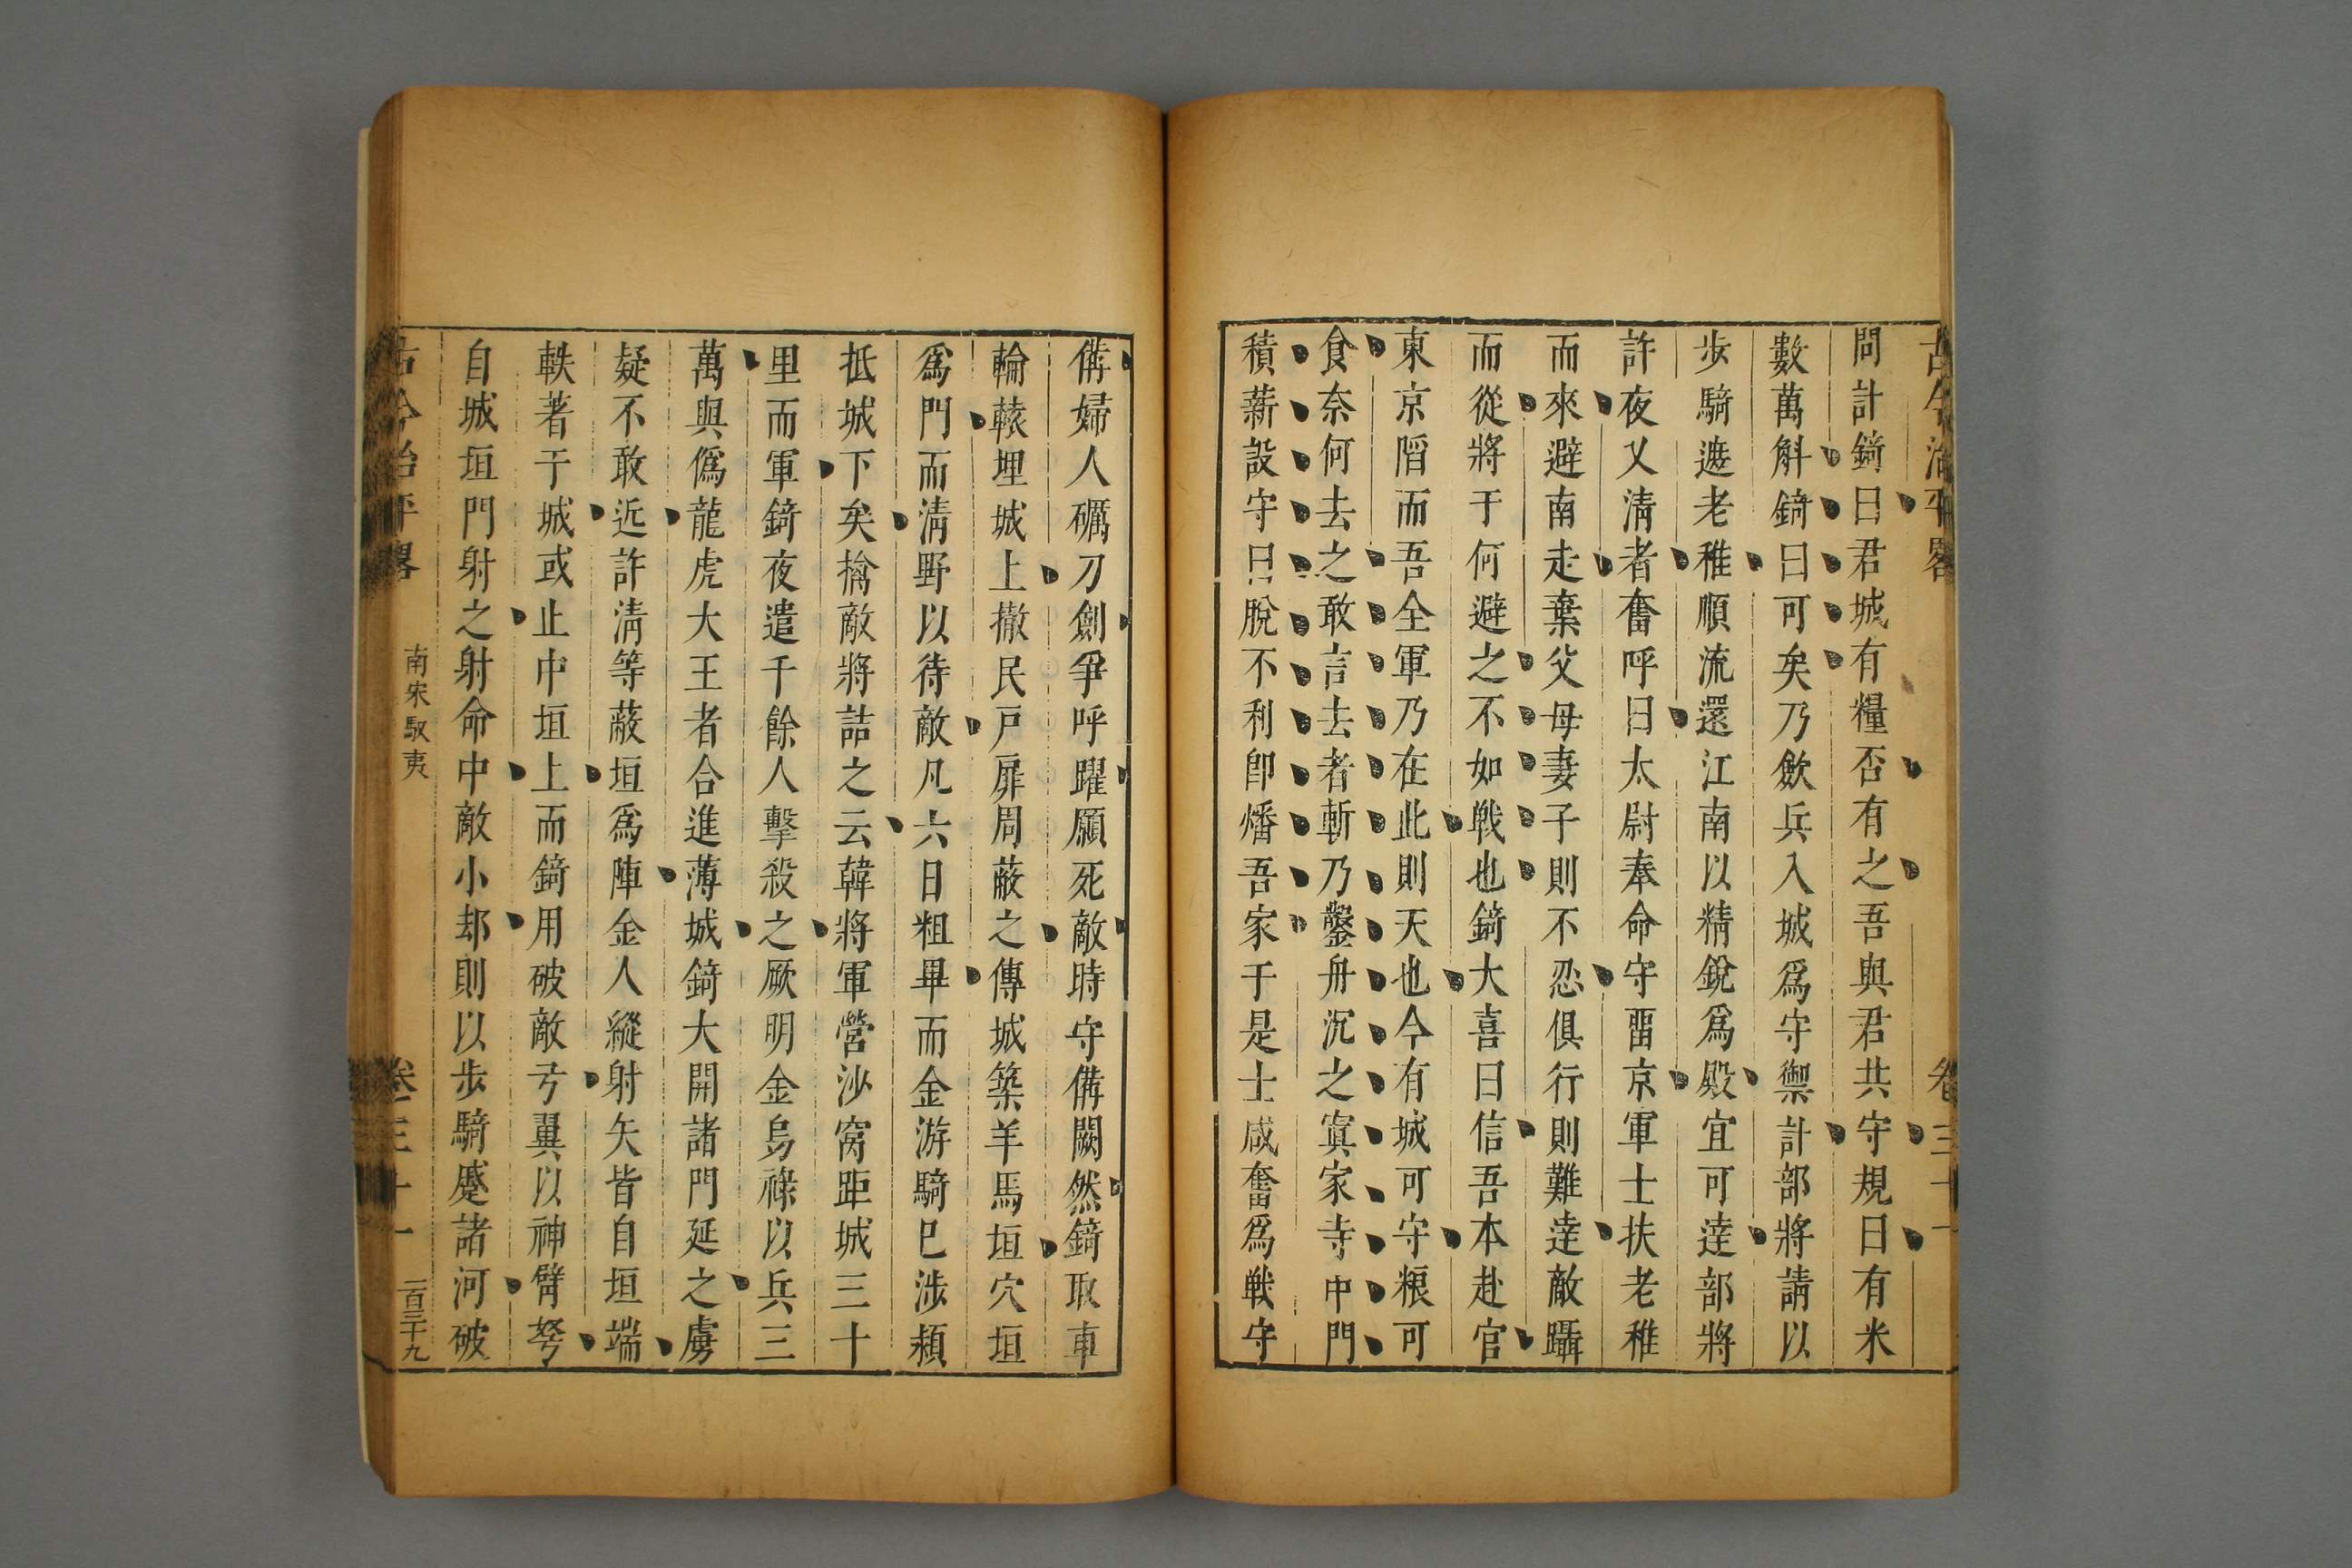 古今治平畧 卷三十一
問計錡曰君城有糧否有之吾與君共守規曰有米
數萬斛錡曰可矣乃歛兵入城爲守禦計部將請以
步騎遮老稚順流還江南以精銳爲殿宜可達部將
許夜叉清者奮呼曰太尉奉命守畱京軍士扶老稚
而來避南走棄父母妻子則不忍俱行則難達敵躡
而從將于何避之不如戰也錡大喜曰信吾本赴官
東京陷而吾全軍乃在此則天也今有城可守粮可
食奈何去之敢言去者斬乃鑿舟沉之寘家寺中門
積薪設守曰脫不利卽燔吾家于是士咸奮爲戰守
備婦人礪刀劍爭呼躍願死敵時守備闕然錡取車
輪轅埋城上撤民戸扉周蔽之傳城築羊馬垣穴垣
爲門而清野以待敵凡六日粗畢而金游騎巳涉潁
抵城下矣擒敵將詰之云韓將軍營沙窩距城三十
里而軍錡夜遣千餘人擊殺之厥明金烏祿以兵三
萬與僞龍虎大王者合進薄城錡大開諸門延之虜
疑不敢近許清等蔽垣爲陣金人縱射矢皆自垣端
軼著于城或止中垣上而錡用破敵弓翼以神臂弩
自城垣門射之射命中敵小却則以步騎蹙諸河破
古今治平畧 南宋馭夷 卷三十一 一百三十九